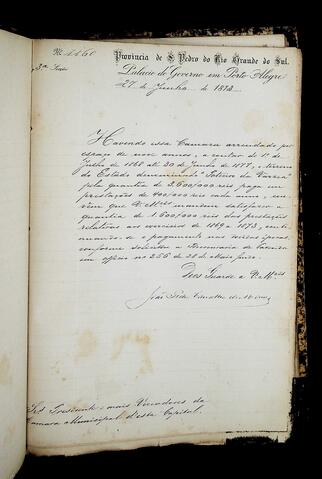 Nº 1160
Provincia de S. Pedro do Rio Grande do Sul.
3ª Secção
Palacio do Governo em Porto Alegre
27 de Junho de 1874
Havendo essa Camara arrendado por
espaço de nove annos, a contar do 1º de
Julho de 1868 at 30 de Junho de 1877, o terreno
do Estado denominado "Potreiro da Varzea"
pela quantia de 3.600,000 reis, paga em
prestações de 400,000 em cada anno, con-
vém que V. Mcês mandem satisfazer a
quantia de 1.600,000 reis das prestações
relativas aos exercicios de 1869 a 1873, con-
tinuando-se o pagamento nas outras epocas,
conforme solicita a Thesouraria de Fazenda
em officio nº 256 de 28 de Maio findo.
Deos Guarde a V. Mcês
João Pedro Carvalho de Moraes
Srs. Presidente e mais Vereadores da
Camara Municipal d'esta Capital.